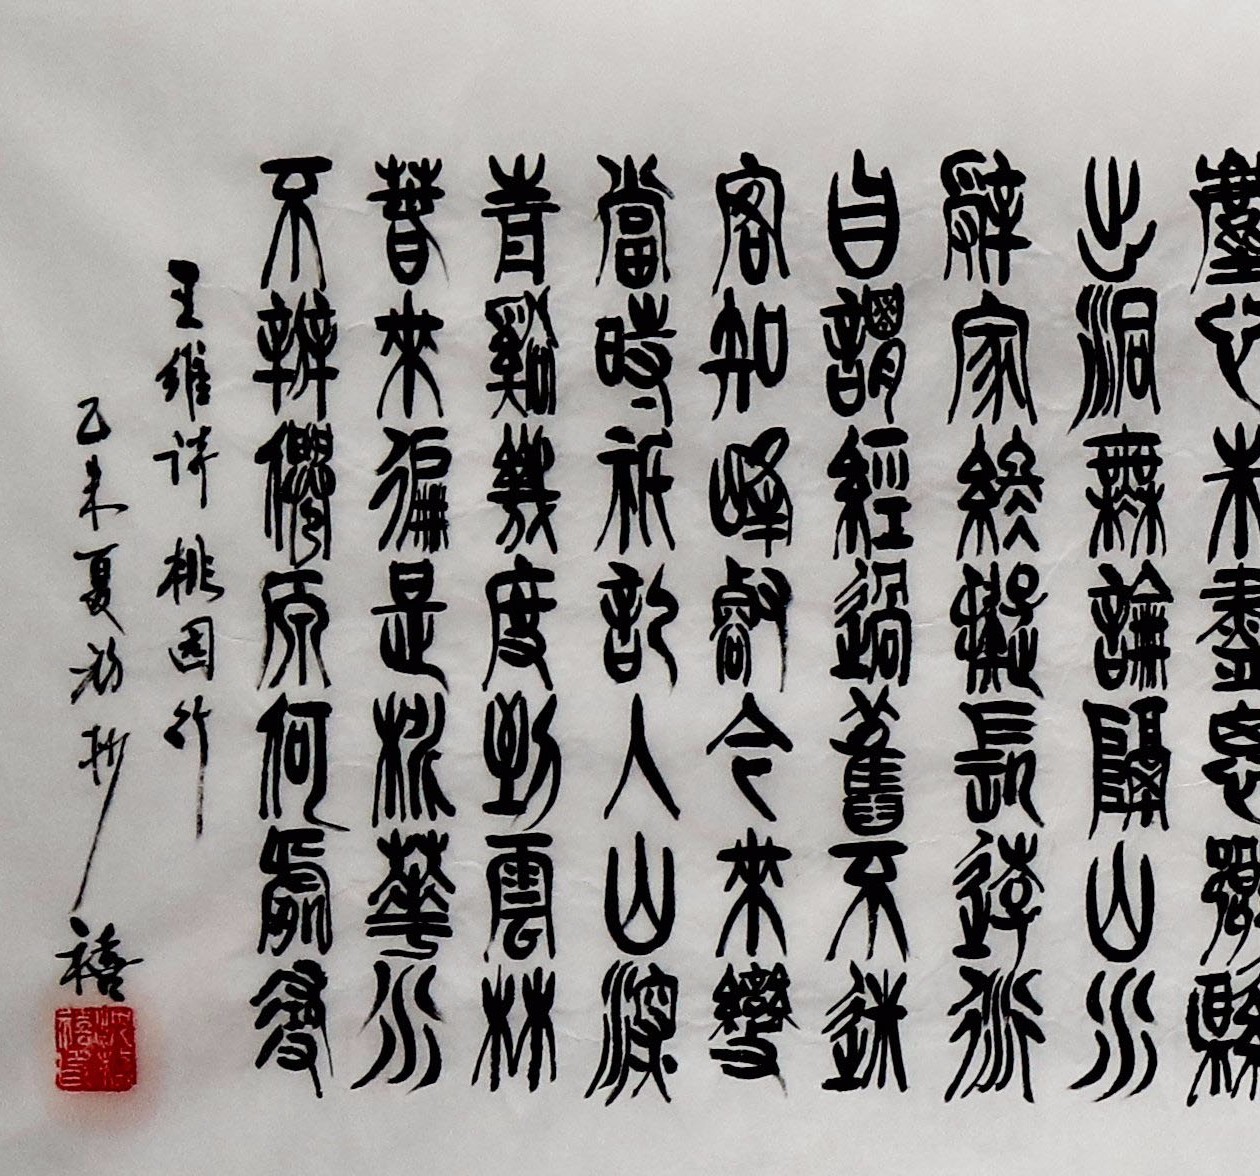 塵心未盡思鄉縣
出洞無論隔山水
辭家終擬長遊衍
自謂經過舊不迷
客知峰壑今來變
當時祇記入山深
青谿幾度到雲林
春來徧是桃華水
不辨僊原何處尋
王維诗桃园行
乙未夏抄禧